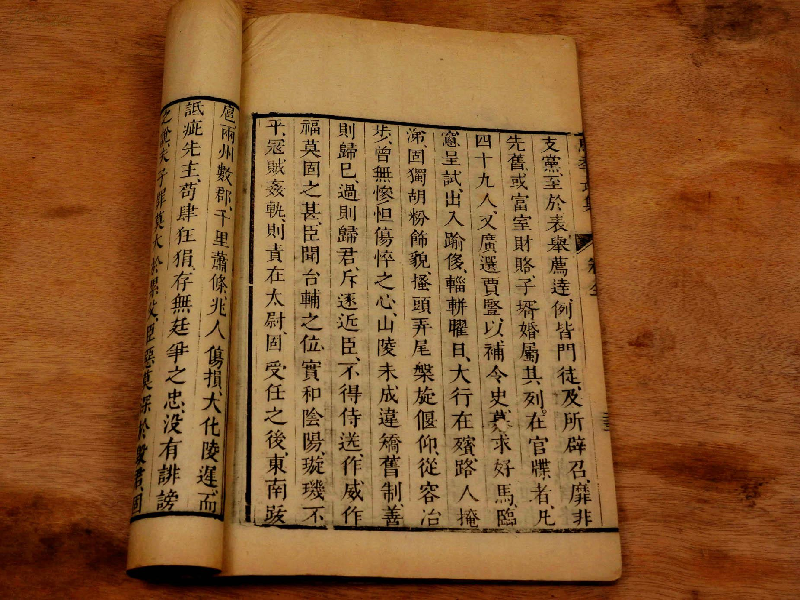 支黨、至於表舉薦達、例皆門徒、及所辟召、靡非
先舊、或富室財賂、子壻婚屬、其列在官牒者、凡
四十九人、又廣選賈豎、以補令史、募求好馬、臨
窻呈試、出入踰侈、輜軿曜日、大行在殯、路人掩
涕、固獨胡粉飾貌、搔頭弄尾、槃旋偃仰、從容冶
步、曾無慘怛傷悴之心、山陵未成、違矯舊制、善
則歸巳、過則歸君、斥逐近臣、不得侍送、作威作
福、莫固之甚、臣聞台輔之位、實和陰陽、璇璣不
平、冦賊姦軌、則責在太尉、固受任之後、東南跋
扈、兩州數郡、千里蕭條、兆人傷損、大化陵遲、而
詆疵先主、苟肆狂狷、存無廷爭之忠、没有誹謗
之說、夫子罪莫大於累父、臣惡莫深於毀君、固